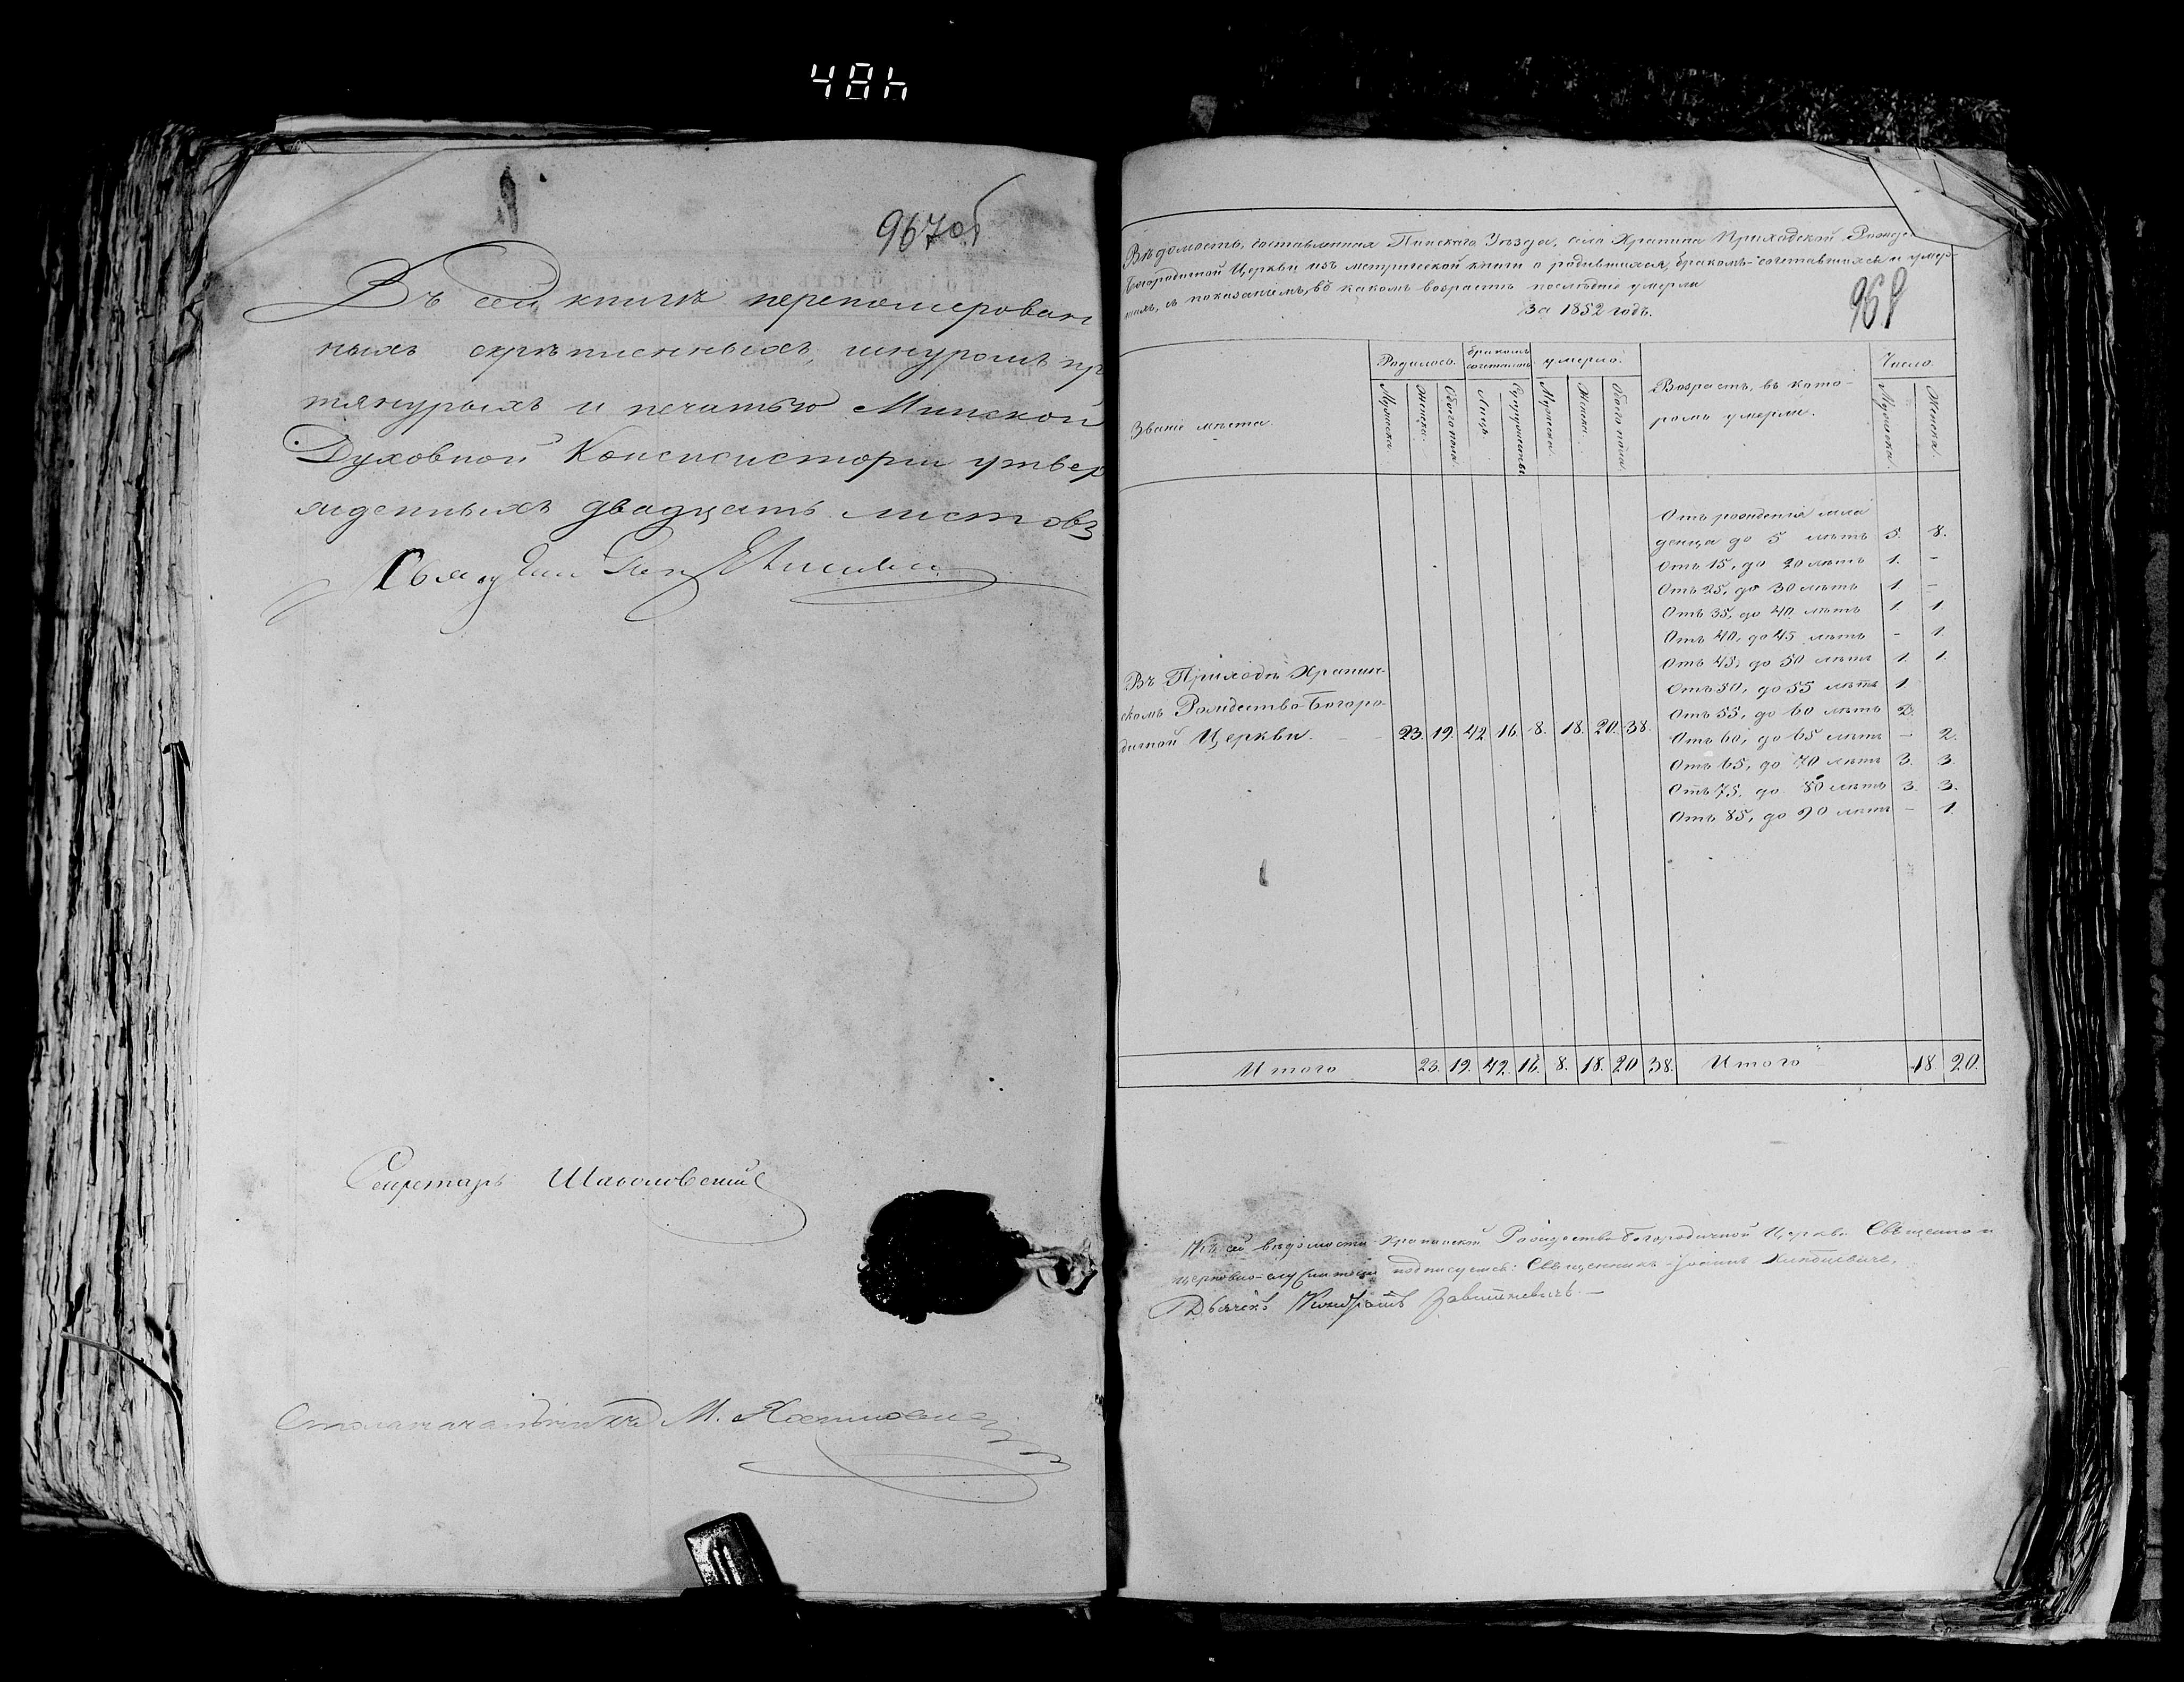 48h
967об
Въ сей книгѣ перенумерован
ныхъ скрѣпленныхъ, шнуромъ пр
тянурыхъ и печатью Минской
Духовной Консисисторіи утвер
жденныхъ двадцать листовъ
Секретарь
Столоначальникъ М.
968
Вѣдомость, составленная Пинскаго Уѣзда, села Храпина Приходской Рожде
Богородичной Церкви изъ метрической книги о родившихся, бракомъ-сочетавшихся и умер-
шихъ, съ показаніемъ, въ какомъ возрастѣ послѣдніе умерли
За 1852 годъ.
Званіе мѣста.
Родилось.
Мужеска.
Женска.
Обоего пола
бракомъ
сочеталось
Лицъ.
Супружествъ
умерло.
Мужеска.
Женска.
Обоего пола
Возрастъ, въ кото-
ромъ умерли.
Число
Мужеска.
Женска.
Отъ рожденія мла
денца до 5 лѣтъ 5. 8.
Отъ 15, до 20 лѣтъ 1. -
Отъ 25, до 30 лѣтъ 1. -
Отъ 35, до 40 лѣтъ 1. 1.
Отъ 40, до 45 лѣтъ - 1.
Отъ 45, до 50 лѣтъ 1. 1.
Отъ 50, до 55 лѣтъ 1.
Отъ 55, до 60 лѣтъ 2.
Отъ 60, до 65 лѣтъ - 2.
Отъ 65, до 70 лѣтъ 3. 3.
Отъ 75, до 80 лѣтъ 3. 3.
Отъ 85, до 90 лѣтъ - 1.
Въ Приходѣ Храпин-
скомъ Рождество-Богоро-
дичной Церкви. - - 23. 19. 42. 16. 8. 18. 20. 38.
Итого 23. 19. 42. 16. 8. 18. 20 38. Итого 18. 20.
Къ сей вѣдомости Храпинской Рождество-Богородичной Церкви Священно и
церковно-служители подписуемся: Священникъ Іоаннъ
Дьячекъ Кондратъ Завитневичъ. -